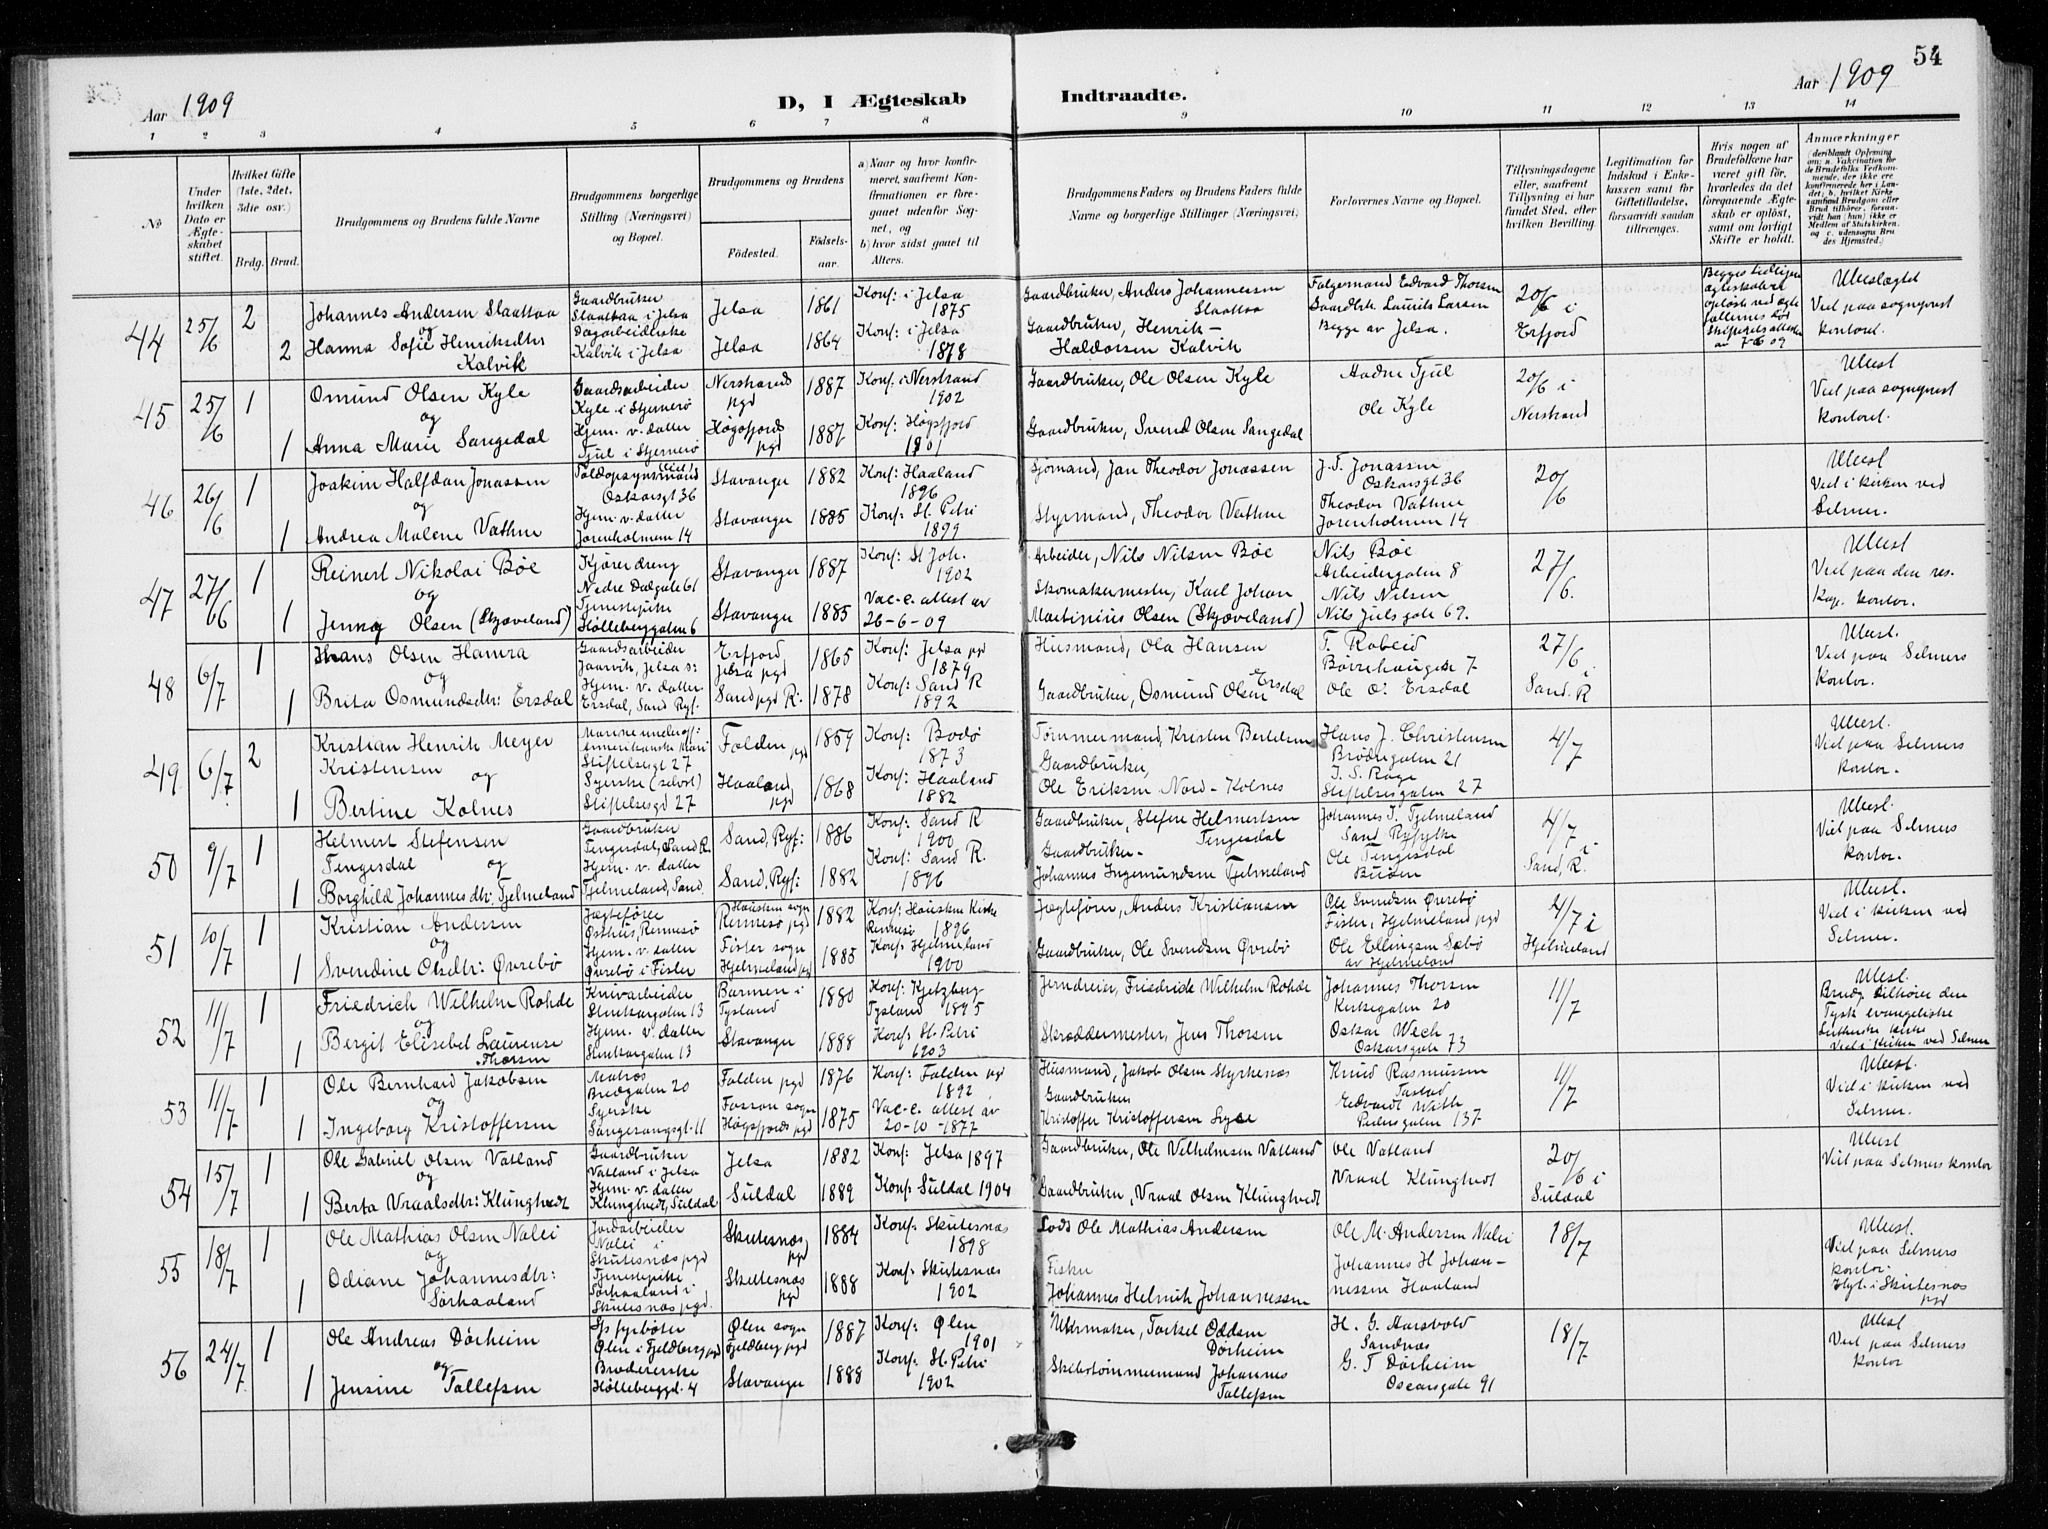 54
Aar 1909
D, I Ægteskab Indtraadte.
Aar 1909
1 2 3 4 5 6 7 8 9 10 11 12 13 14
No
Under hvilken Dato er Ægteskabet stiftet.
Hvilket Gifte (1ste, 2det, 3die osv.)
Brdg. Brud.
Brudgommens og Brudens fulde Navne
Brudgommens borgerlige Stilling (Næringsvei) og Bopæl.
Brudgommens og Brudens
Födested.
Födselsaar.
a) Naar og hvor konfirmeret, saafremt Konfirmationen er foregaaet udenfor Sognet, og
b) hvor sidst gaaet til Alters.
Brudgommens Faders og Brudens Faders fulde Navne og borgerlige Stillinger (Næringsvei)
Forlovernes Navne og Bopæl.
Tillysningsdagene eller, saafremt Tillysning ei har fundet Sted, efter hvilken Bevilling.
Legitimation for Indskud i Enkekassen samt for Giftetilladelse, forsaavidt saadan tiltrænges.
Hvis nogen af Brudefolkene har været gift før, hvorledes da det foregaaende Ægteskab er oplöst, samt om lovligt Skifte er holdt.
Anmærkninger
(deriblandt Oplysning om: a. Vakcination for de Brudefolks Vedkommende, der ikke ere konfirmerede her i Landet; b. hvilket Kirkesamfund Brudgom eller Brud tilhörer, forsaavidt han (hun) ikke er Medlem af Statskirken, og c. udensogns Brudes Hjemsted.)
44 25/6 2 Johannes Andersen Slaattaa
og
2 Hanna Sofie Henriksdtr Kalvik
Gaardbruker
Slaattaa i Jelsa
Dagarbeiderske
Kalvik i Jelsa
Jelsa 1861 Konf: i Jelsa 1875
Jelsa 1864 Konf: i Jelsa 1878
Gaardbruker, Anders Johannessen Slaattaa
Gaardbruker, Henrik Haldorsen Kalvik
Edvard Thorsen
Gaardbr. Laurits Larsen
Begge av Jelsa.
20/6 i Erfjord
Ubeslægtet
Viet paa sogneprest kontoret.
45 25/6 1 Osmund Olsen Kyle
og
1 Anna Marie Sangedal
Gaardsarbeider
Kyle i Stjernerö
Hjem. v. datter
Tjul i Stjernerö
Nerstrands pgd 1887 Konf: i Nerstrand 1902
Högsfjords pgd 1887 Konf: Högsfjord 1901
Gaardbruker, Ole Olsen Kyle
Gaardbruker, Svend Olsen Sangedal
Aadne Tjul
Ole Kyle
20/6 i Nerstrand
Ubesl
Viet paa sogneprest kontoret.
46 26/6 1 Joakim Halfdan Jonassen
og
1 Andrea Malene Vathne
Toldopsynsmand
Oskarsgt 36
Hjem. v. datter
Jorenholmen 14
Stavanger 1882 Konf: Haaland 1896
Stavanger 1885 Konf: St. Petri 1899
Sjömand, Jan Theodor Jonassen
Styrmand, Theodor Vathne
J. T. Jonassen
Oskarsgt 36
Theodor Vathne
Jorenholmen 14
20/6
Ubesl
Viet i kirken ved Selmer.
47 27/6 1 Reinert Nikolai Böe
og
1 Jenny Olsen (Skjæveland)
Kjöredreng
Nedre Dalgate 61
Tjenestepike
Hölleberggaten 6
Stavanger 1887 Konf: St Joh. 1902
Stavanger 1885 Vac-c. attest av 26-6-09
Arbeider, Nils Nilsen Böe
Skomakermester, Karl Johan Martinius Olsen (Skjæveland)
Nils Böe
Arbeidergaten 8
Nils Nilsen
Nils Juelsgate 69.
27/6.
Ubesl
Viet paa den res. Kap. kontor.
48 6/7 1 Hans Olsen Hamra
og
1 Brita Osmundsdtr: Ersdal
Gaardsarbeider
Jaarvik, Jelsa s:
Hjem. v. datter
Ersdal, Sand Ryf.
Erfjord Jelsa pgd 1865 Konf: Jelsa pgd 1879
Sand pgd R: 1878 Konf: Sand R 1892
Husmand, Ola Hansen
Gaardbruker, Osmund Olsen Ersdal
T. Rabeid
Börehaugen 7
Ole O. Ersdal
27/6 i Sand. R
Ubesl.
Viet paa Selmers kontor.
49 6/7 2 Kristian Henrik Meyer Kristensen
og
1 Bertine Kolnes
Stiftelsesgt 27
Syerske (selvst)
Stiftelsesgd 27
Folden pgd 1859 Konf: Bodö 1873
Haaland pgd 1868 Konf: Haaland 1882
Tömmermand, Kristen Bertelsen
Gaardbruker,
Ole Eriksen Nord-Kolnes
Hans J. Christensen
Brödregaten 21
T. S. Rage
Stiftelsesgaten 27
4/7
Ubesl.
Viet paa Selmers kontor.
50 9/7 1 Helmert Stefensen Tengesdal
og
1 Borghild Johannesdtr. Tjelmeland
Gaardbruker
Tengesdal, Sand R.
Hjem. v. datter
Tjelmeland, Sand.
Sand, Ryf: 1886 Konf: Sand R 1900
Sand, Ryf: 1882 Konf: Sand R. 1896
Gaardbruker, Stefen Helmertsen Tengesdal
Gaardbruker-
Johannes Ingemundsen Tjelmeland
Johannes I. Tjelmeland
Sand Ryfylke
Ole Tengesdal
Buöen
4/7 i Sand, R.
Ubesl.
Viet paa Selmers kontor.
51 10/7 1 Kristian Andersen
og
1 Svendine Olsdtr: Övrebö
Jægtefører
Östhus, Rennesö
Hjem. v. datter
Övrebö i Fister
Hausken sogn Rennesö pgd 1882 Konf: Hausken Kirke Rennesö 1896
Fister sogn Hjelmeland pgd 1885 Konf: Hjelmeland 1900
Jægtefører, Anders Kristiansen
Gaardbruker, Ole Svendsen Övrebö
Ole Svendsen Övrebö
Fister, Hjelmeland pgd
Ole Ellingsen Sebö
av Hjelmeland
4/7 i Hjelmeland
Ubesl.
Viet i kirken ved Selmer.
52 11/7 1 Friedrich Wilhelm Rohde
og
1 Bergit Elisebet Laurense Thorsen
Knivarbeider
Stenkargaten 13
Hjem. v. datter
Stenkargaten 13
Barmen i Tysland 1880 Konf: Kjetzberg Tysland 1895
Stavanger 1888 Konf: St. Petri 1903
Jerndreier, Friedrich Wilhelm Rohde
Skræddermester, Jens Thorsen
Johannes Thorsen
Kirkegaten 20
Oskar Wech
Oskarsgate 73
11/7
Ubesl.
Brudg. tilhörer den
Tysk evangeliske
Lutherske kirke
Viet i kirken ved Selmer
53 11/7 1 Ole Bernhard Jakobsen
og
1 Ingeborg Kristoffersen
Matros
Bredgaten 20
Syerske
Sangesangsgt. 11
Folden pgd 1876 Konf: Folden pgd 1892
Fossan sogn Högsfjords pgd 1875 Vac-c. attest av 20-10-1877
Husmand, Jakob Olsen Styrkenæs
Gaardbruker
Kristoffer Kristoffersen Lyse
Knud Rasmussen
Tastad
Edvardt With
Pedersgaten 137
11/7
Ubesl.
Viet i kirken ved Selmer.
54 15/7 1 Ole Gabriel Olsen Vatland
og
1 Berta Vraalsdtr: Klungtvedt
Gaardbruker
Vatland i Jelsa
Hjem v. datter
Klungtvedt, Suldal
Jelsa 1882 Konf: Jelsa 1897
Suldal 1889 Konf: Suldal 1904
Gaardbruker, Ole Vilhelmsen Vatland
Gaardbruker, Vraal Olsen Klungtvedt
Ole Vatland
Vraal Klungtvedt
20/6 i Suldal
Ubesl
Viet paa Selmers kontor
55 18/7 1 Ole Mathias Olsen Nalei
og
1 Odiane Johannesdtr: Sörhaaland
Jordarbeider
Nalei i
Skutesnæs pgd
Tjenestepike
Sörhaaland i
Skutesnæs pgd.
Skutesnæs pgd 1884 Konf: Skutesnæs 1898
Skutesnæs pgd 1888 Konf: Skutesnæs 1902
Lods Ole Mathias Andersen
Fisker
Johannes Helmich Johannessen
Ole M. Andersen Nalei
Johannes H Johannessen Haaland
18/7
Ubesl.
Viet paa Selmers kontor.
Lyst i Skutesnæs pgd
56 24/7 1 Ole Andreas Dörheim
og
1 Jensine Tallefsen
fyrböter
Ölen i Fjeldberg pgd
Broderske
Hölleberggd. 4
Ölen sogn Fjeldberg pgd 1887 Konf: Ölen 1901
Stavanger 1888 Konf: St. Petri 1902
Uhrmaker, Torkel Oddsen Dörheim
Skibstömmermand Johannes Tallefsen
H. G. Aarsvold
Sandnæs
G. T Dörheim
Oscarsgate 91
18/7
Ubesl
Viet paa Selmers kontor